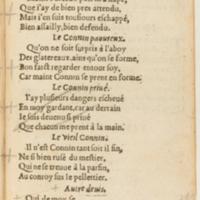 Que i'ay de bien pres attendu,
Mais i'en suis tousiours eschappé,
Bien assailly, bien defendu.
Le Connin paoureux.
Qu'on ne soit surpris à l'aboy
Des glatereaux, ainsi qu'on se forme,
Bon fact regarder entour soy,
Car maint Connin se prent en forme.
Le Connin priué.
I'ay plusieurs dangers escheué
En moy gardant, car au derrain
Ie suis deuenu si priué
Que chacun me prent à la main.
Le Vieil Connin.
Il n'est Connin tant soit il fin,
Ne si bien rusé du mestier,
Qui ne se treuue à la parfin,
Au conroy sus le pelletier.
Autre deuis.
Qui de moy se